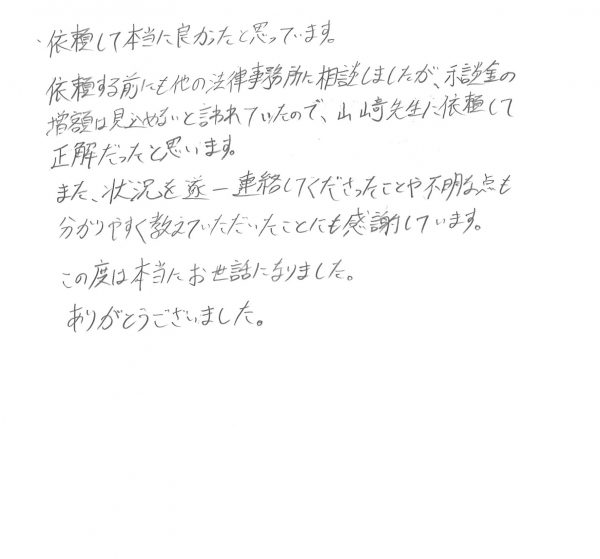 ・依頼して本当に良かったと思っています。
依頼する前にも他の法律事務所に相談しましたが、示談金の
増額は見込めないと言われていたので、山﨑先生に依頼して
正解だったと思います。
また、状況を逐一連絡してくださったことや不明な点も
分かりやすく教えていただいたことにも感謝しています。
この度は本当にお世話になりました。
ありがとうございました。